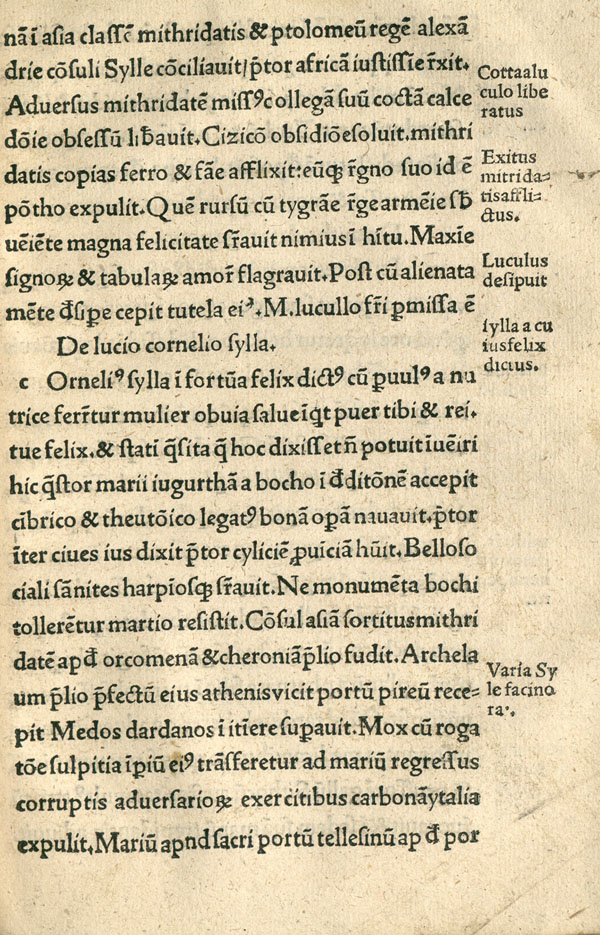 nā ī asia classē mithridatis & ptolomeū regē alexā
drie cōsuli Sylle cōciliauit/p̄tor africā iustissīe r̄xit.
Aduersus mithridatē missꝰ collegā suū coctā calce
dōie obsessū lib̄auit. Cizicō obsidiōe soluit. mithri
datis copias ferro & fāe afflixit: eūqꝫ r̄gno suo id ē
pōtho expulit. Quē rursū cū tygrāe r̄ge armēie sb̄
uēiēte magna felicitate sr̄auit nimius ī hītu. Maxīe
signoꝝ & tabulaꝝ amor̄ flagrauit. Post cū alienata
mēte d̄sipe cepit tutela eiꝰ. M. lucullo fr̄i ꝑmissa ē
De lucio cornelio sylla.
c Orneliꝰ sylla ī fortūa felix dictꝰ cū ꝑuulꝰ a nu
trice ferr̄tur mulier obuia salue īqt puer tibi & rei.
tue felix. & statī q̄sita q̄ hoc dixisset n̄ potuit īuēiri
hic q̄stor marii iugurthā a bocho ī d̄ditōnē accepit
cībrico & theutōico legatꝰ bonā opā nauauit. p̄tor
īter ciues ius dixit p̄tor cyliciē ꝓuiciā hūit. Belloso
ciali sānites harpīosqꝫ sr̄auit. Ne monumēta bochi
tollerētur martio resistit. Cōsul asiā sortitus mithri
datē apd̄ orcomenā & cheroniā p̄lio fudit. Archela
um p̄lio p̄fectū eius athenis vicit portū pireū rece=
pit Medos dardanos ī itīere suꝑauit. Mox cū roga
tōe sulpitia īpiū eiꝰ trāsferetur ad mariū regressus
corruptis aduersarioꝝ exercitibus carbonā ytalia
expulit. Mariū apnd sacri portū tellesinū apd̄ por
Cottaalu
culo libe
ratus
Exitus
mitrida=
tis affli=
ctus.
Luculus
desipuit
sylla a cu
ius felix
dicius.
Varia Sy
le facino
ra.